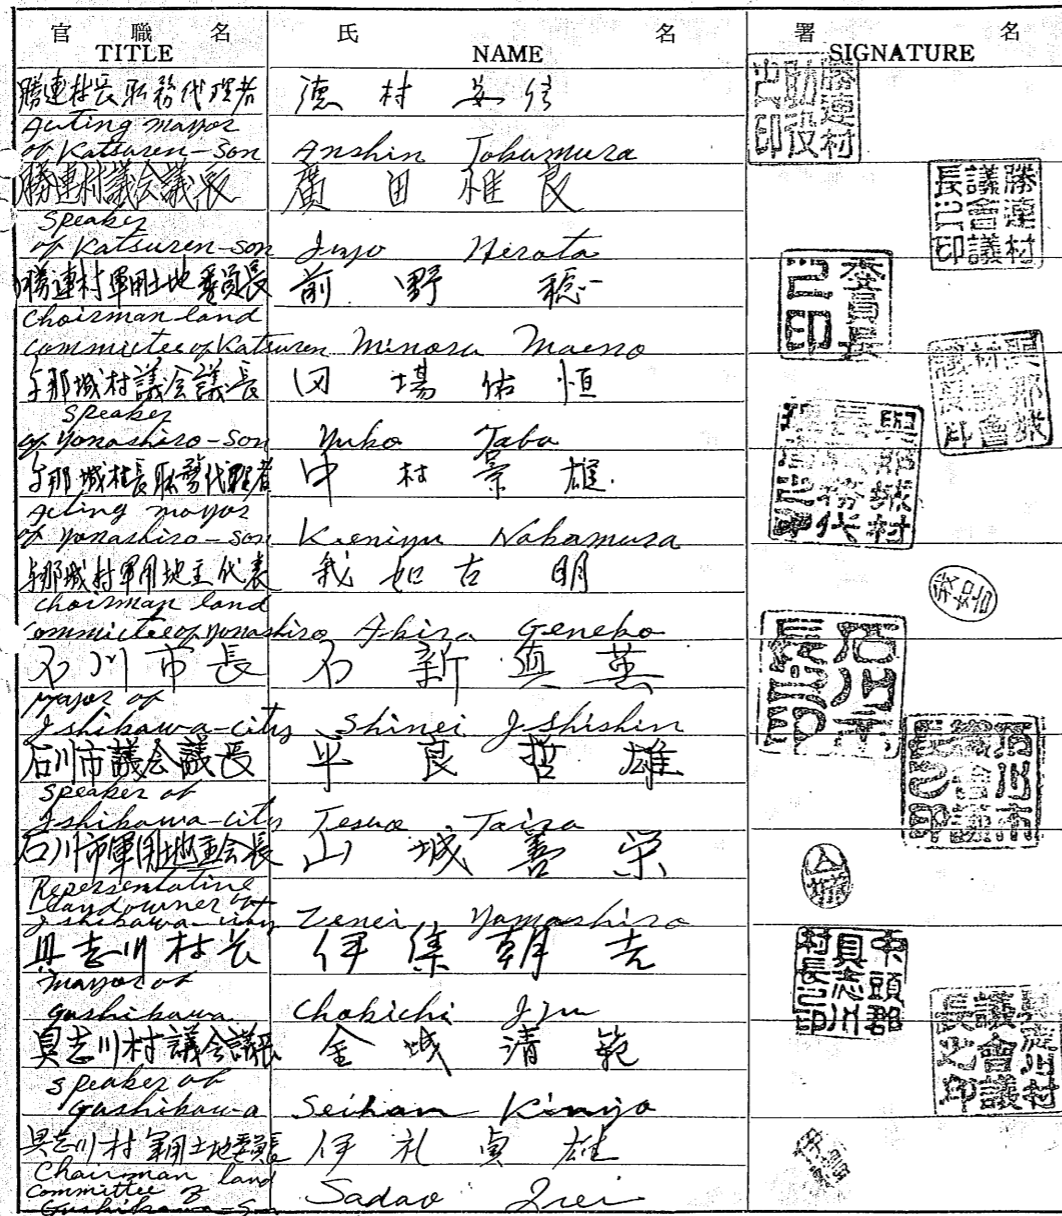 官職名 氏名 署名
TITLE NAME SIGNATURE
勝連村長職務代理者 德村安信 勝連村助役之印
Acting mayor
of Katsuren-Son Anshin Tokumura
勝連村議会議長 廣田唯良 勝連村議會議長之印
Speaker
of Katsuren-son Hirota
勝連村軍用土地委員長 前野穏一 委員長之印
Chairman land
committee of Katsuren Minoru Maeno
与那城村議会議長 田場佑恒
Speaker
of Yonashiro-Son Yuko Taba
与那城村長职務代理者 中村景雄
Acting mayor
of Yonashiro-Son Keniyu Nakamura
与那城村軍用地主代表 我如古明
Chairman land
committee of Yonashiro Akira Geneko
石川市長 石新真英 石川市長之印
Mayor of
Ishikawa-city Shinei Ishishin
石川市議会議長 平良哲雄 石川市議會議長之印
Speaker of
Ishikawa-city Tesuo Taira
石川市軍用地主会長 山城善栄
Representative
Landowner of
Ishikawa-city Zenei Yamashiro
具志川村长 伊集朝吉 中頭郡具志川村長之印
Mayor of
Gushikawa Chokichi Iju
具志川村議会議長 金城清範 具志川村議會議長之印
Speaker of
Gushikawa Seihan Kinijo
具志川村軍用土地委員長 伊礼貞雄
Chairman land
Committee of
Gushikawa-Son Sadao Irei